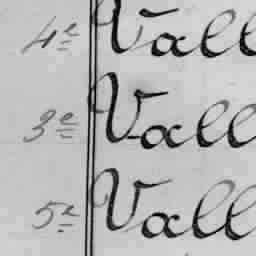 4e Vall
3e Vall
5e Vall